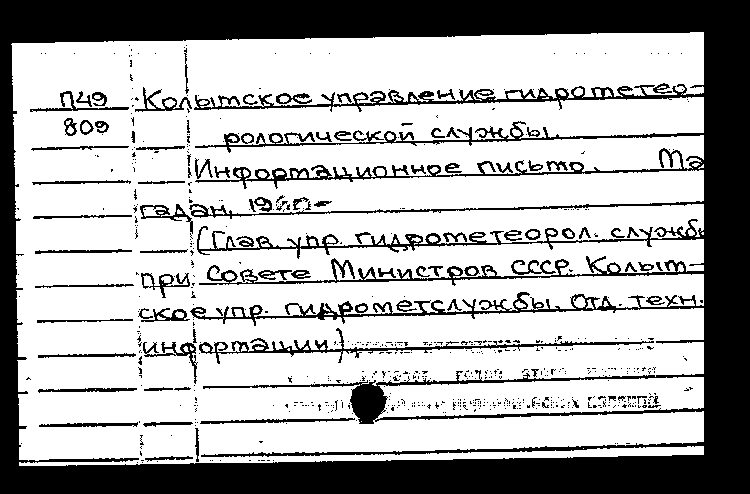 П49 Колымское управление гидрометео-
809 рологической службы.
Информационное письмо. Ма
гадан, 1960-
(Глав. упр. гидрометеорол. службы
при Совете Министров СССР. Колым-
ское упр. гидрометслужбы. Отд. техн.
информации).